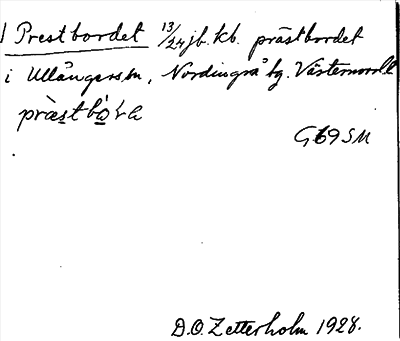 1 Prestbordet 13/24 jb. kb. prästbordet
i Ullångers sn, Nordingrå tg. Västernorrl. l.
G69SM
D.O. Zetterholm 1928.